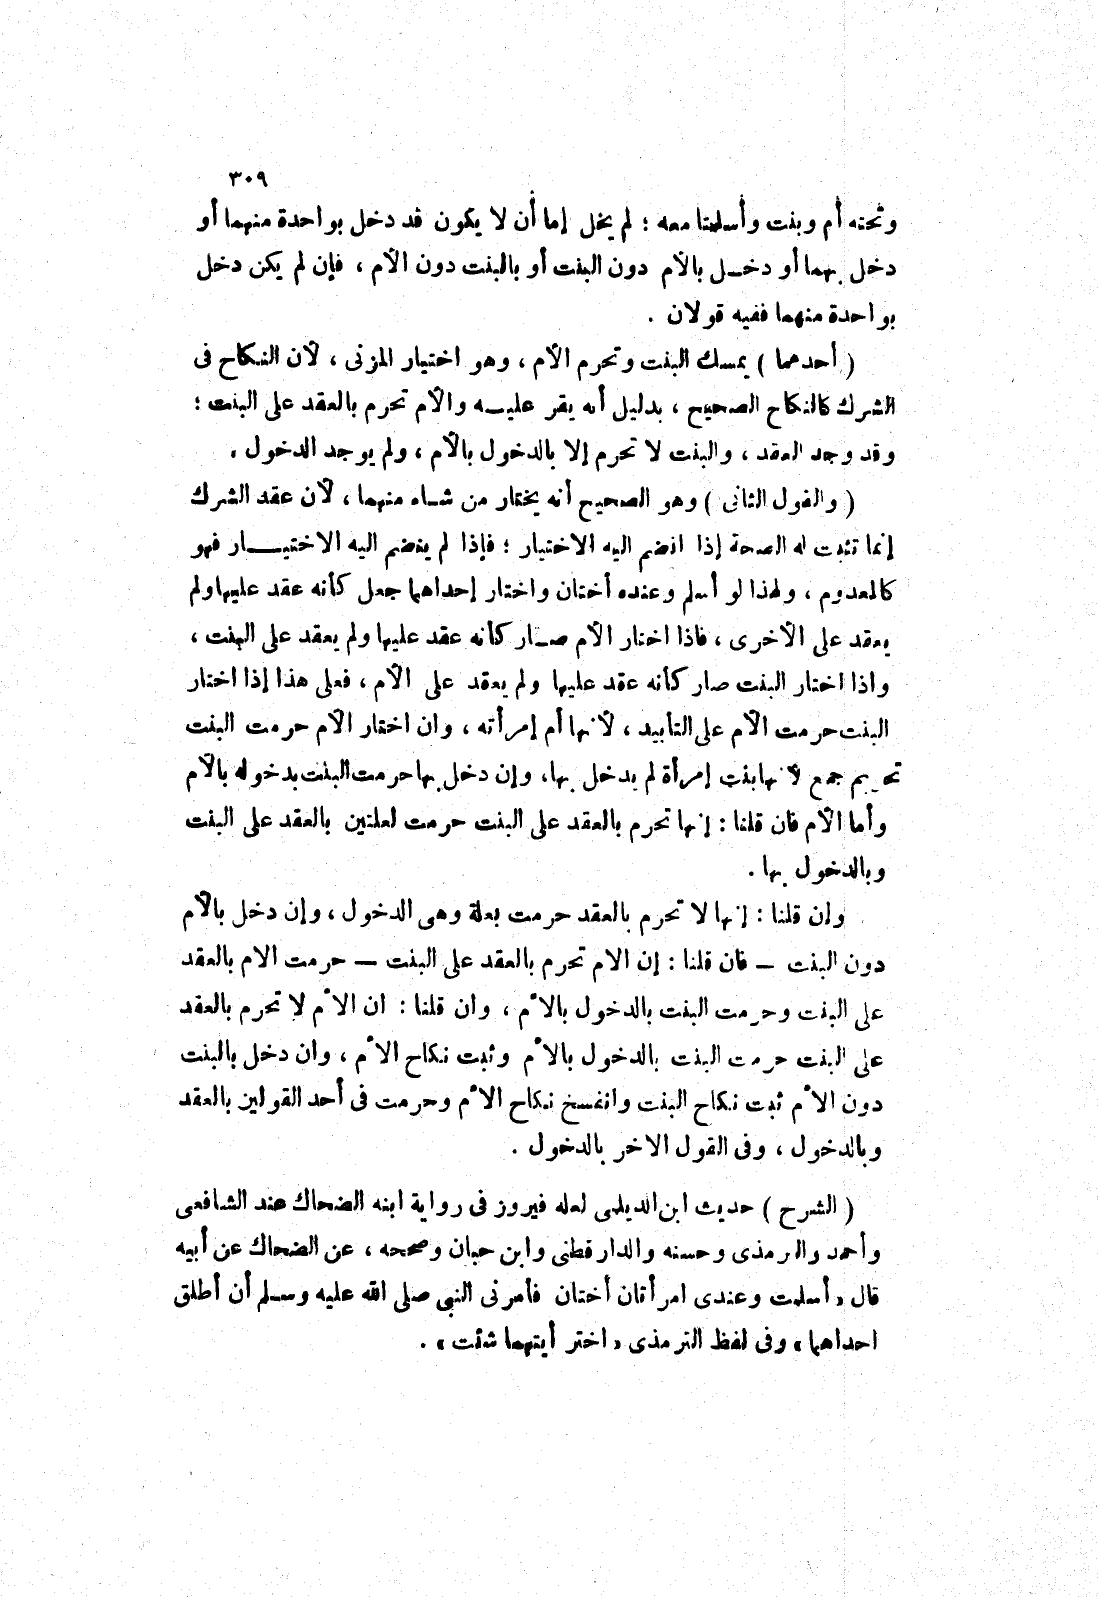 ٣٠٩
وتحته أم وبنت وأسلمتا معه ؛ لم يخل إما أن لا يكون قد دخل بواحدة منهما أو
دخل بهما أو دخل بالأم دون البنت أو بالبنت دون الأم ، فإن لم يكن دخل
بواحدة منهما ففيه قولان .
( أحدهما ) يمسك البنت وتحرم الأم ، وهو اختيار المزنى ، لأن النكاح فى
الشرك كالنكاح الصحيح ، بدليل أنه يقر عليه والأم تحرم بالعقد على البنت ؛
وقد وجد العقد ، والبنت لا تحرم إلا بالدخول بالأم ، ولم يوجد الدخول .
( والقول الثانى ) وهو الصحيح أنه يختار من شاء منهما ، لأن عقد الشرك
إنما تثبت له الصحة إذا انضم اليه الاختيار ؛ فإذا لم ينضم اليه الاختيار فهو
كالمعدوم ، ولهذا لو أسلم وعنده أختان واختار إحداهما جعل كأنه عقد عليها ولم
يعقد على الأخرى ، فاذا اختار الأم صار كأنه عقد عليها ولم يعقد على البنت ،
واذا اختار البنت صار كأنه عقد عليها ولم يعقد على الأم ، فعلى هذا إذا اختار
البنت حرمت الأم على التأبيد ، لأنها أم إمرأته ، وان اختار الأم حرمت البنت
تحريم جمع لأنها بنت إمرأة لم يدخل بها، وإن دخل بها حرمت البنت بدخوله بالأم
وأما الأم فان قلنا : إنها تحرم بالعقد على البنت حرمت لعلتين بالعقد على البنت
وبالدخول بها .
وان قلنا : إنها لا تحرم بالعقد حرمت بعلة وهى الدخول ، وإن دخل بالأم
دون البنت — فان قلنا : إن الام تحرم بالعقد على البنت — حرمت الام بالعقد
على البنت وحرمت البنت بالدخول بالأم ، وان قلنا : ان الأم لا تحرم بالعقد
على البنت حرمت البنت بالدخول بالأم وثبت نكاح الأم ، وان دخل بالبنت
دون الأم ثبت نكاح البنت وانفسخ نكاح الأم وحرمت فى أحد القولين بالعقد
وبالدخول ، وفى القول الاخر بالدخول .
( الشرح ) حديث ابن الديلمى لعله فيروز فى رواية ابنه الضحاك عند الشافعى
وأحمد والترمذى وحسنه والدارقطنى وابن حبان وصححه ، عن الضحاك عن أبيه
قال « أسلمت وعندى امرأتان أختان فأمرنى النبى صلى الله عليه وسلم أن أطلق
احداهما » وفى لفظ الترمذى « اختر أيتهما شئت » .